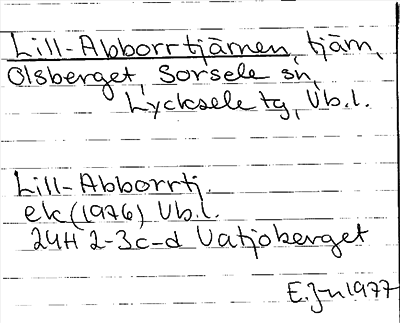 Lill-Abborrtjärnen, tjärn,
Olsberget, Sorsele sn,
Lycksele tg, Vb.l.
Lill-Abborrtj.
ek (1976) Vb.l.
24H 2-3c-d Vatjoberget
E. Jn 1977